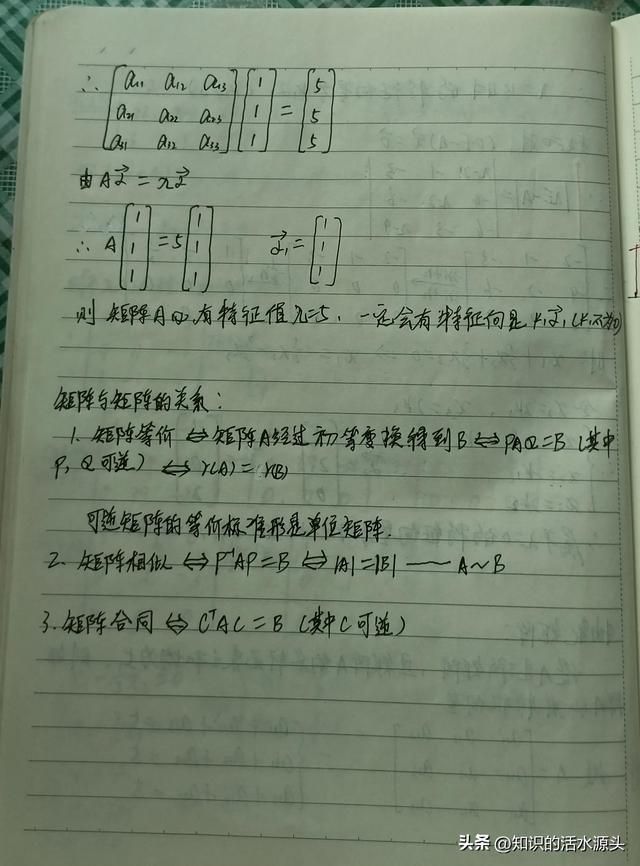 ∴ [a₁₁ a₁₂ a₁₃] [1] = [5]
[a₂₁ a₂₂ a₂₃] [1] [5]
[a₃₁ a₃₂ a₃₃] [1] [5]
由A𝛼⃗ = λ𝛼⃗
∴ A [1] = 5 [1] 𝛼⃗₁ = [1]
[1] [1] [1]
[1] [1] [1]
则 矩阵A必有特征值λ=5, 一定会有特征向是 k₁𝛼⃗₁ (k₁不为0)
矩阵与矩阵的关系:
1. 矩阵等价 ⇔ 矩阵A经过初等变换得到B ⇔ PAQ=B (其中
P, Q可逆) ⇔ r(A) = r(B)
可逆矩阵的等价标准形是单位矩阵.
2. 矩阵相似 ⇔ P⁻¹AP=B ⇔ |A|=|B| —— A~B
3. 矩阵合同 ⇔ CᵀAC = B (其中C可逆)
头条 @知识的活水源头